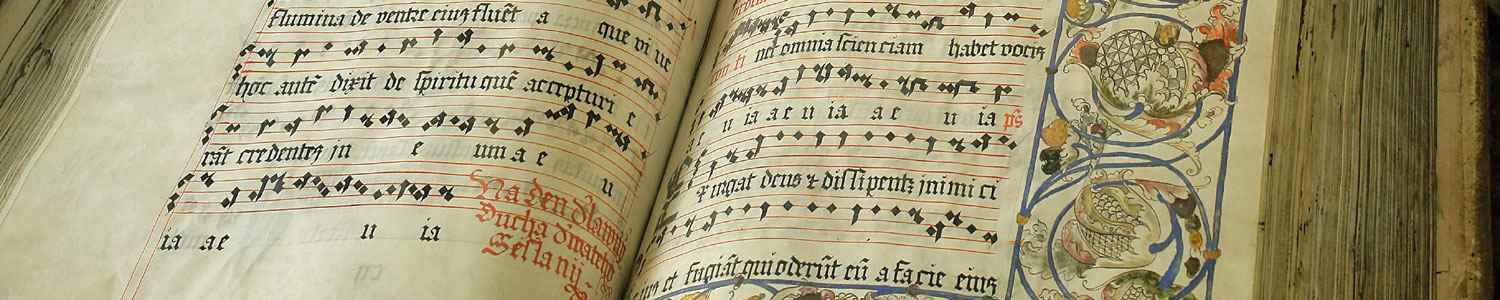 flumina de ventre eiꝰ fluēt a que vi ue
hoc autē dixit de spiritu quē accepturi e
rāt credentes in e um a e u
ia ae u ia
Na den
Ducha
Seslanij
net omnia scienciam habet vocis
u ia a e u ia a e u ia ps
urgat deus ⁊ dissipentr inimi ci
et fugiāt qui oderūt eū a facie eius